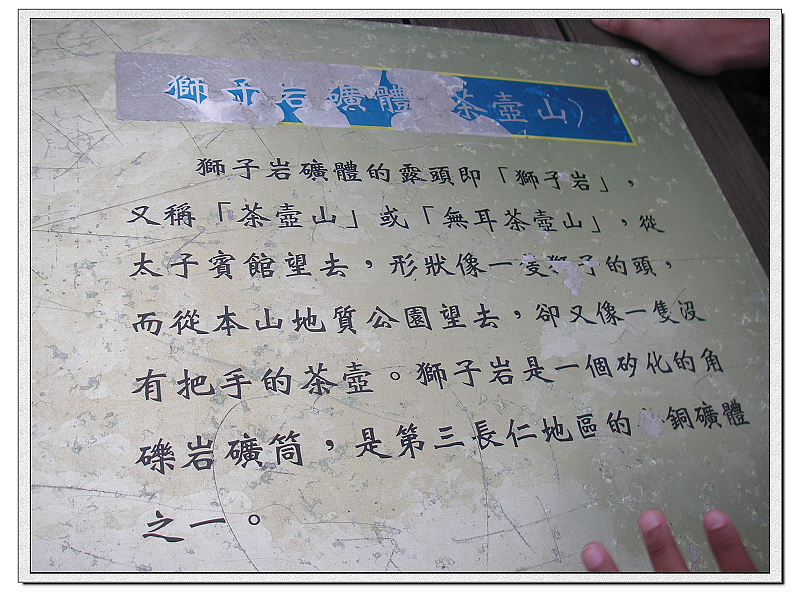 獅子岩礦體(茶壺山)
獅子岩礦體的露頭即「獅子岩」，
又稱「茶壺山」或「無耳茶壺山」，從
太子賓館望去，形狀像一隻獅子的頭，
而從本山地質公園望去，卻又像一隻沒
有把手的茶壺。獅子岩是一個矽化的角
礫岩礦筒，是第三長仁地區的 銅礦體
之一。